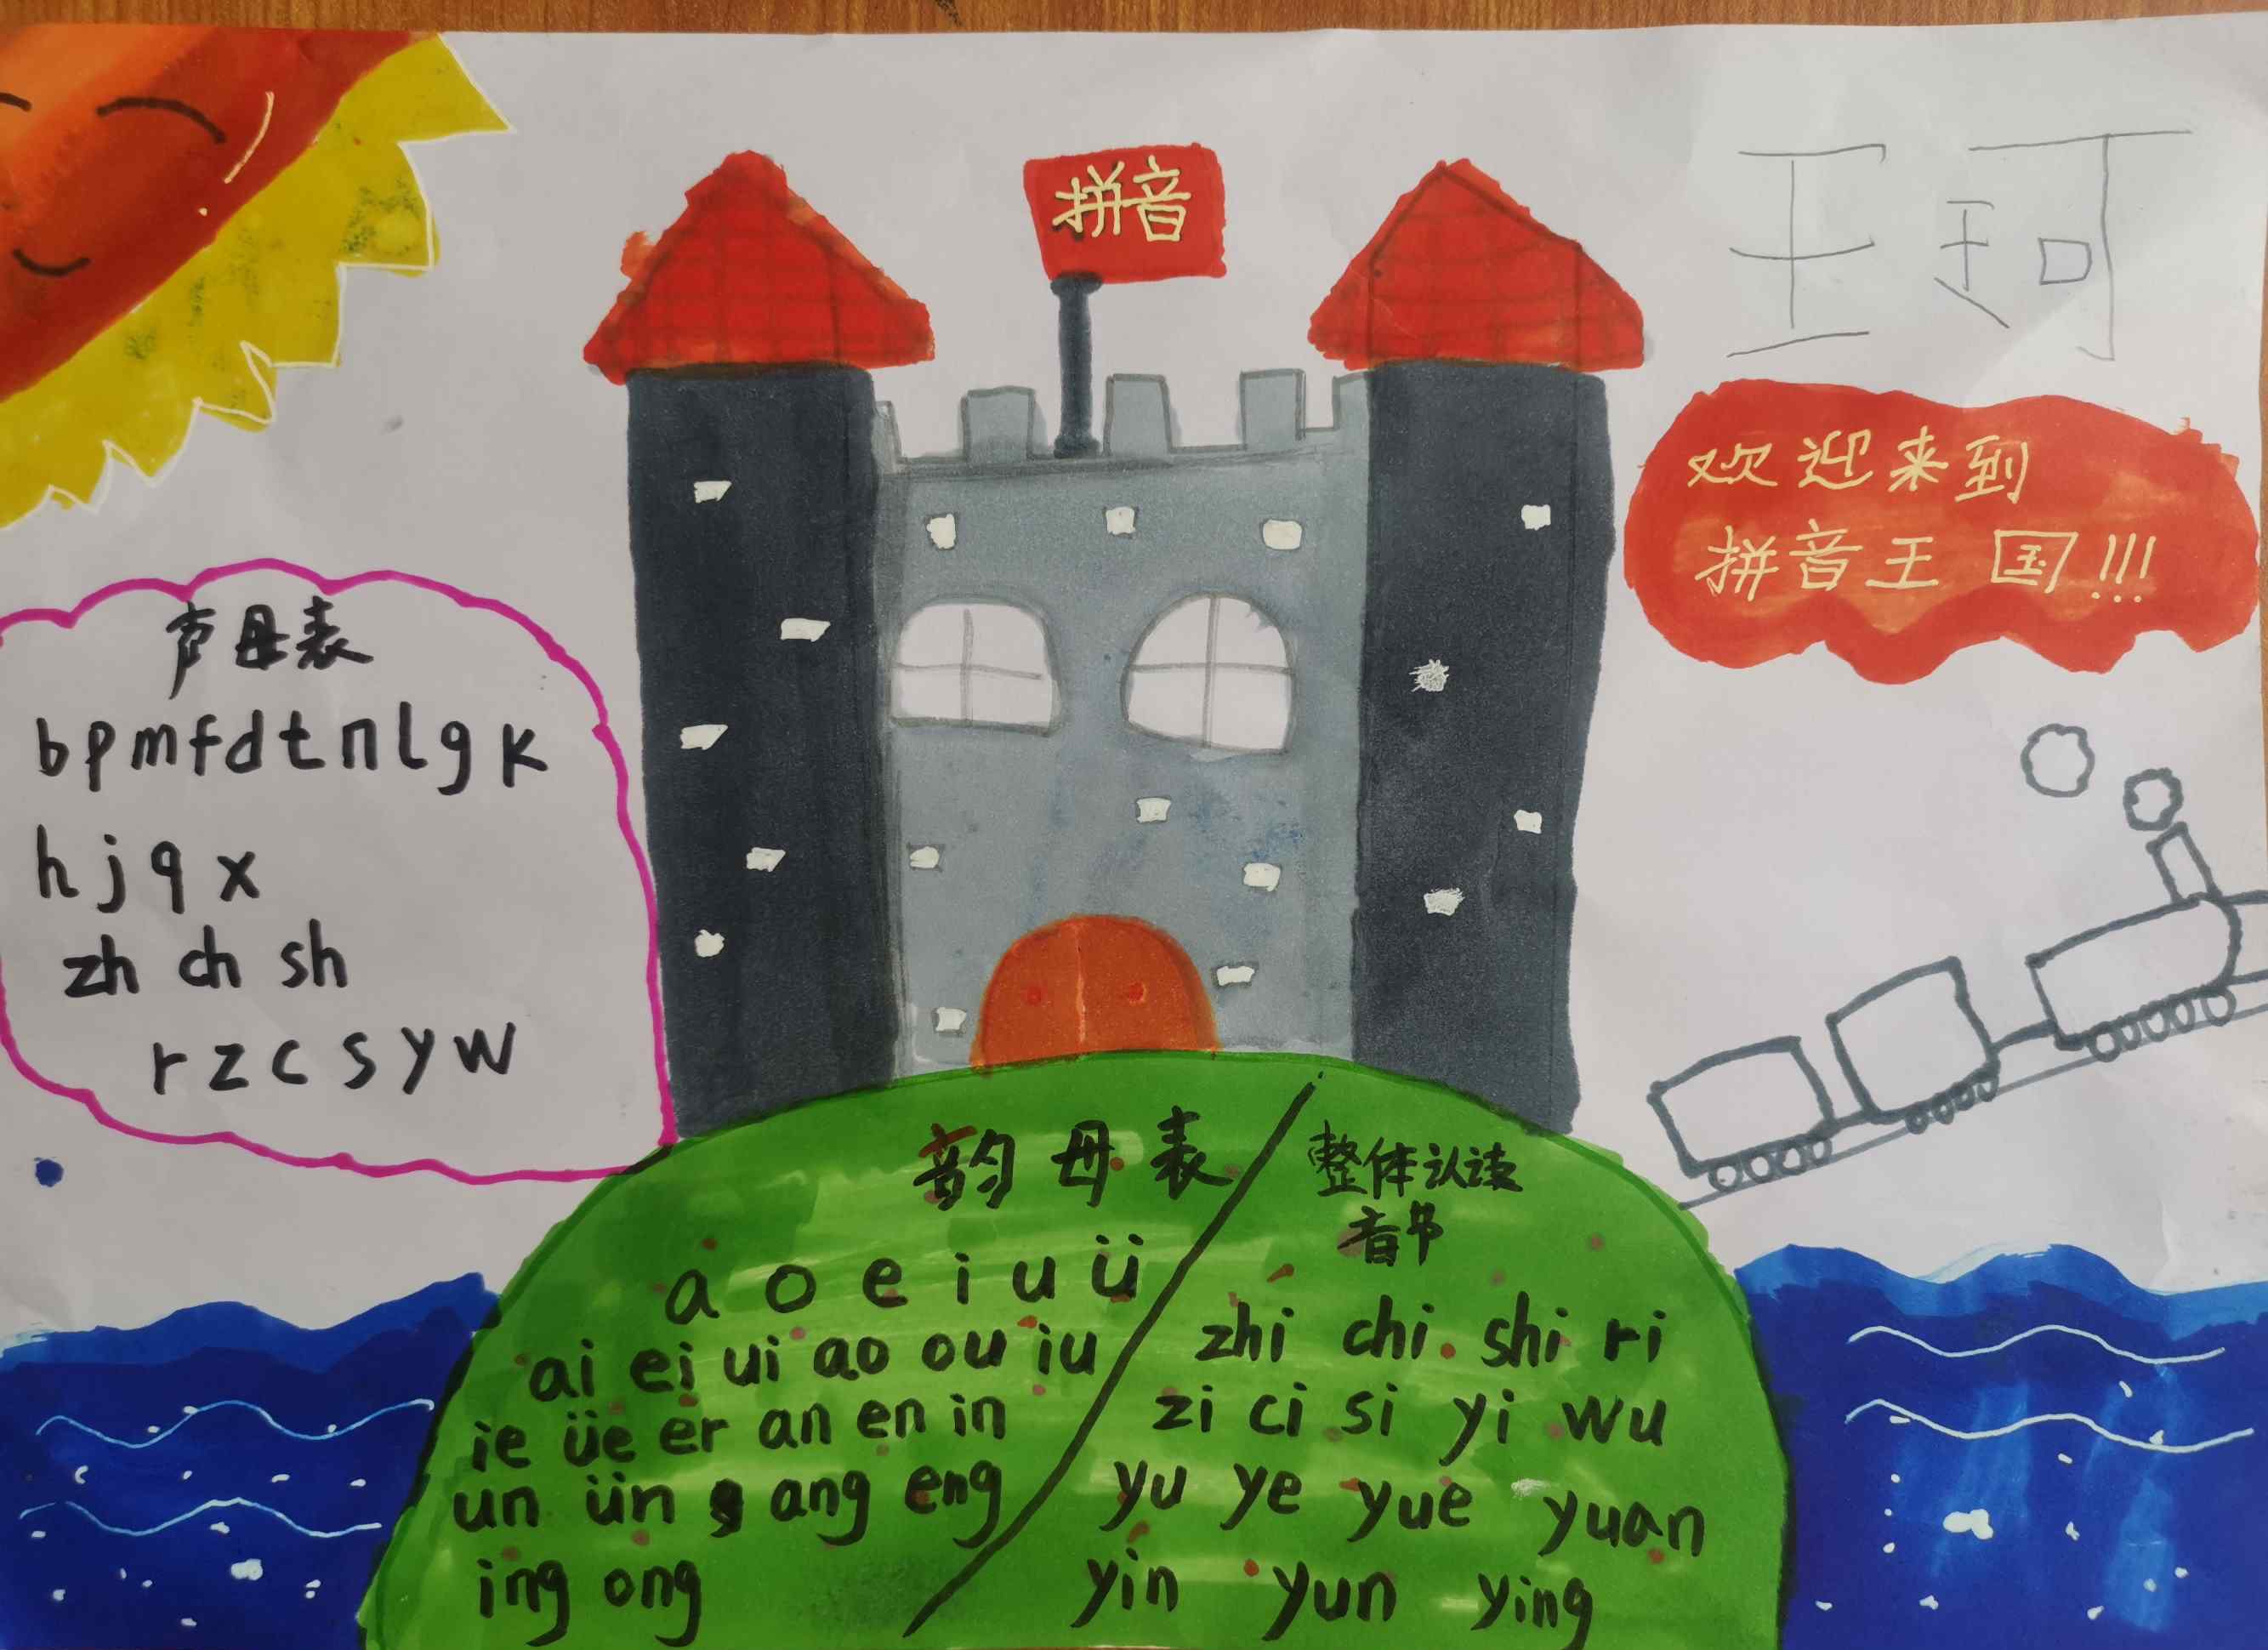 拼音
王珂
欢迎来到
拼音王国!!!
声母表
b p m f d t n l g k
h j q x
zh ch sh
r z c s y w
韵母表
a o e i u ü
ai ei ui ao ou iu
ie üe er an en in
un ün ang eng
ing ong
整体认读
音节
zhi chi shi ri
zi ci si yi wu
yu ye yue yuan
yin yun ying